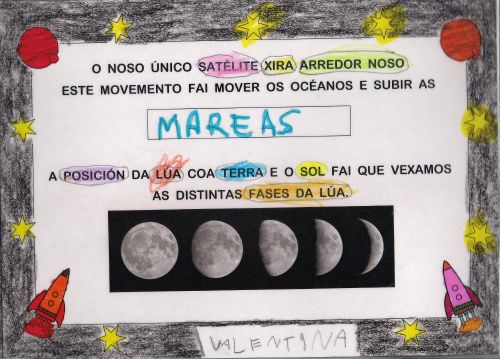 O NOSO ÚNICO SATÉLITE XIRA ARREDOR NOSO
ESTE MOVEMENTO FAI MOVER OS OCÉANOS E SUBIR AS
MAREAS
A POSICIÓN DA LÚA COA TERRA E O SOL FAI QUE VEXAMOS
AS DISTINTAS FASES DA LÚA.
VALENTINA